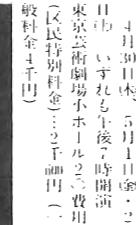 4月30日(木)、5月1日(金)・2
日(土)、いずれも午後7時開演
東京芸術劇場小ホール2◇費用
(区民特別料金)…2千円(一
般料金4千円)